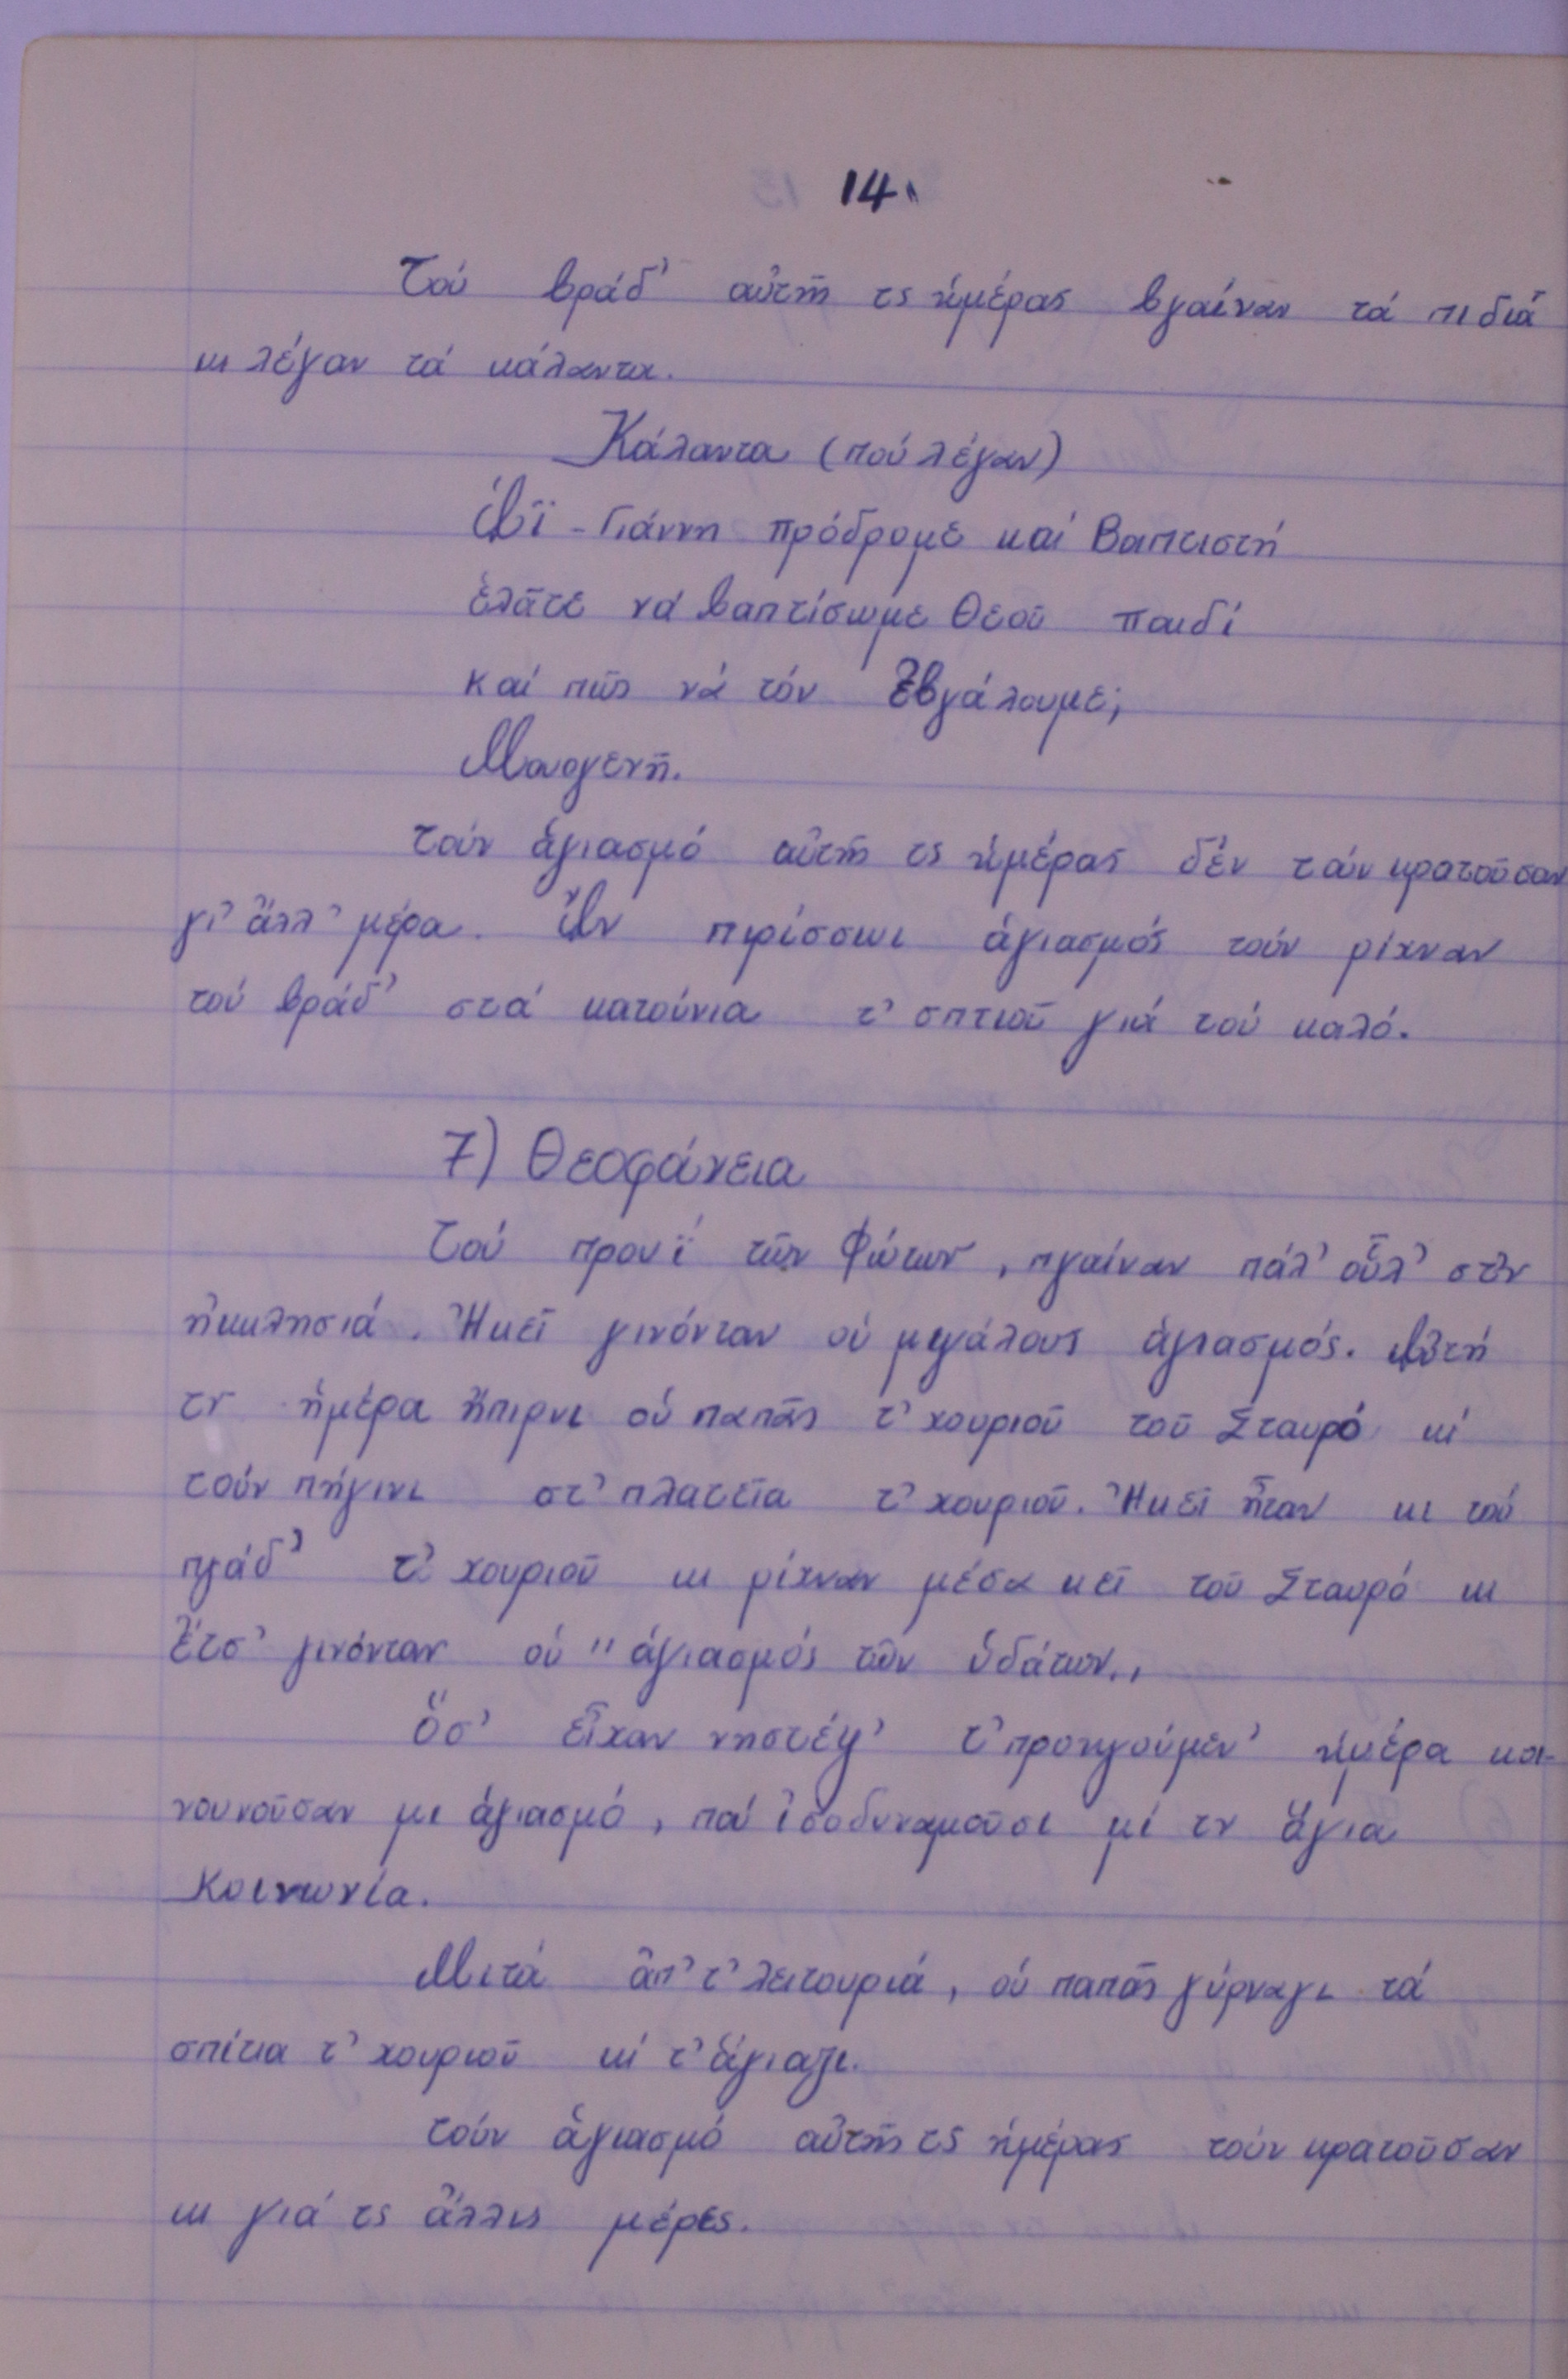 14.
Τού βράδ' αὐτῆς τς ἡμέρας βγαίναν τά πιδιά
κι λέγαν τά κάλαντα.
Κάλαντα (πού λέγαν)
Ἁϊ-Γιάννη πρόδρομε καί Βαπτιστή
ἐλᾶτε νά βαπτίσωμε Θεοῦ παιδί
καί πῶς νά τόν ἐβγάλουμε;
Μονογενῆ.
τούν ἁγιασμό αὐτῆς τς ἡμέρας δέν τούν κρατοῦσαν
γι' ἄλλ' μέρα. Ἄν πιρίσσευι ἁγιασμός τούν ρίχναν
τού βράδ' στά κατούνια τ' σπτιοῦ γιά τού καλό.
7) Θεοφάνεια
Τού προυΐ τῶν Φώτων, πγαίναν πάλ' οὗλ' στν
ἠκκλησιά. Ἠκεῖ γινόνταν οὑ μεγάλους ἁγιασμός. Αὐτή
τν ἡμέρα ἤπιρνι οὑ παπᾶς τ' χουριοῦ τοῦ Σταυρό κί
τούν πήγινι στ' πλατεῖα τ' χουριοῦ. Ἠκεῖ ἦταν κι τού
πγάδ' τ' χουριοῦ κι ρίχναν μέσα κεῖ τοῦ Σταυρό κι
ἔτσ' γινόνταν οὑ "ἁγιασμός τῶν ὑδάτων,,
Ὅσ' εἶχαν νηστέψ' τ' προηγούμεν' ἡμέρα κοι-
νουνοῦσαν μι ἁγιασμό, πού ἰσοδυναμοῦσι μί τν ἅγια
Κοινωνία.
Μιτά ἀπ' τ' λειτουριά, οὑ παπᾶς γύρναγι τά
σπίτια τ' χουριοῦ κί τ' ἅγιαζι.
τούν ἁγιασμό αὐτῆς τς ἡμέρας τούν κρατοῦσαν
κι γιά τς ἄλλις μέρες.